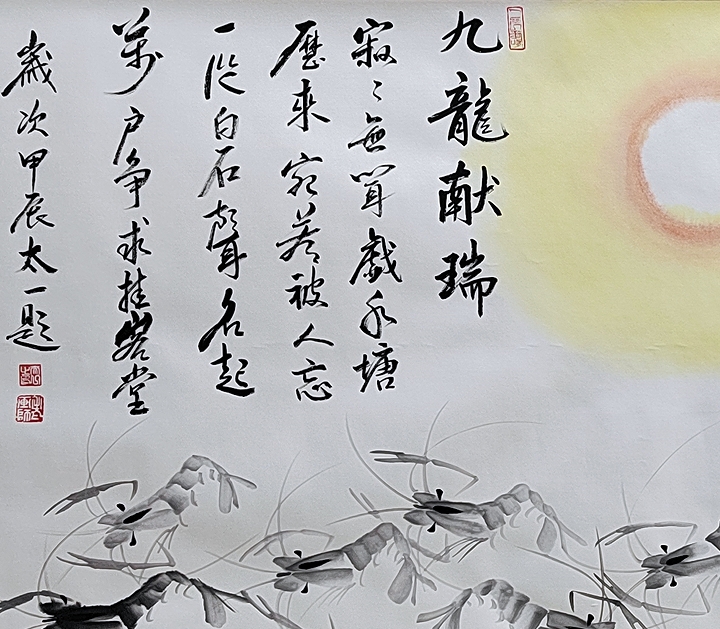 九龍献瑞
寂〻無聞戲水塘
歷來宛若被人忘
一從白石聲名起
萬户争求挂客堂
歲次甲辰太一題